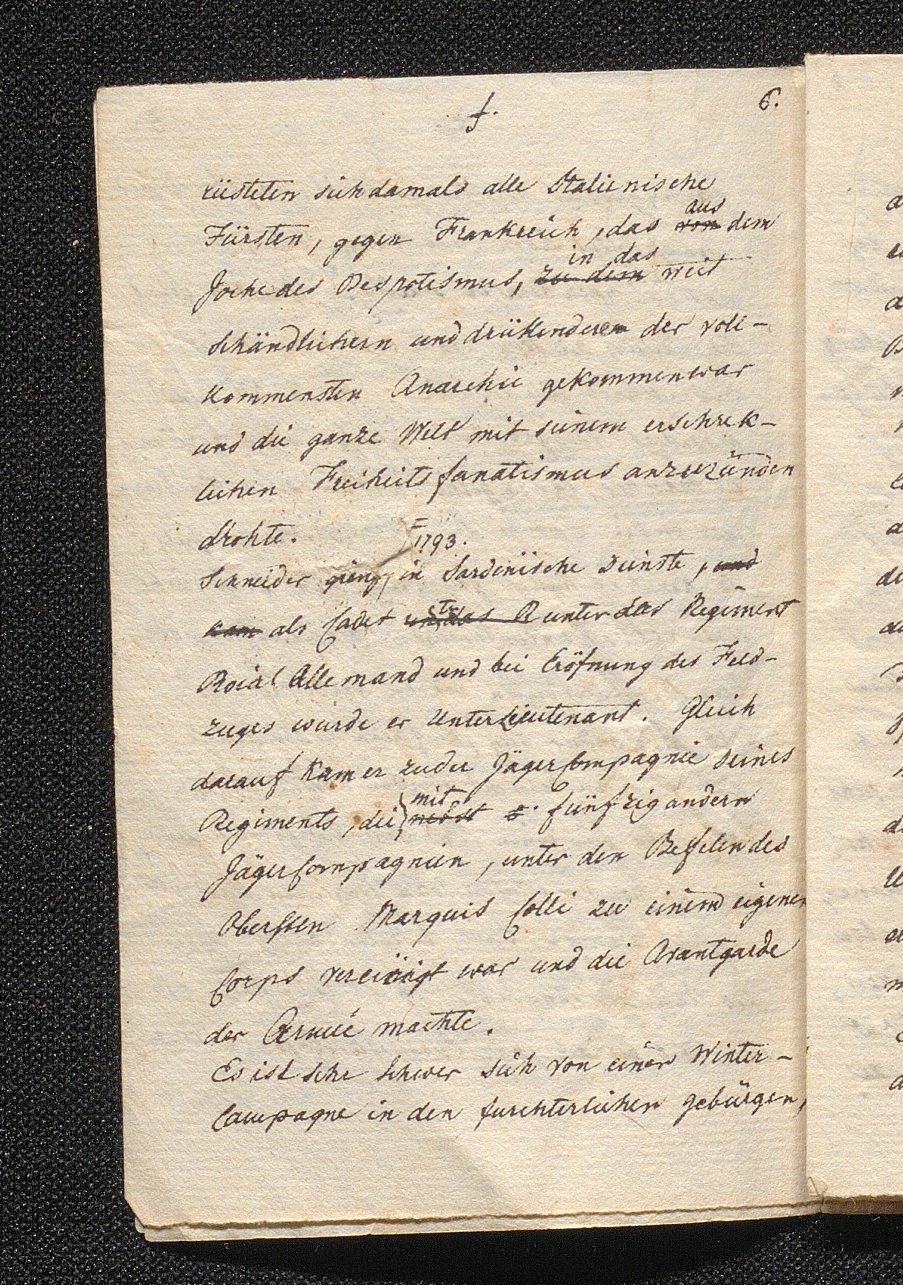 f. 6.
rüsteten sich damals alle Italienische
Fürsten, gegen Frankreich, das von aus dem
Joche des Despotismus, zu dem in das weit
schändlichern und drükenderen der voll-
kommensten Anarchie gekommen war
und die ganze Welt mit seinem erschrek-
lichen Freiheitsfanatismus anzuzünden
drohte.
1793.
Schneider gieng in Sardinische Dienste, und
kam als Cadet unter das Regiment
Roial Allemand und bei Eröfnung des Feld-
zuges wurde er Unterlieutenant. Gleich
darauf kam er zu der Jäger Compagnie seines
Regiments, die nebst mit fünfzig andern
Jäger Compagnien, unter den Befelen des
Obersten Marquis Colli zu einem eigenen
Corps vereinigt war und die Avantgarde
der Armée machte.
Es ist sehr schwer sich von einer Winter-
Campagne in den furchterlichen gebürgen,